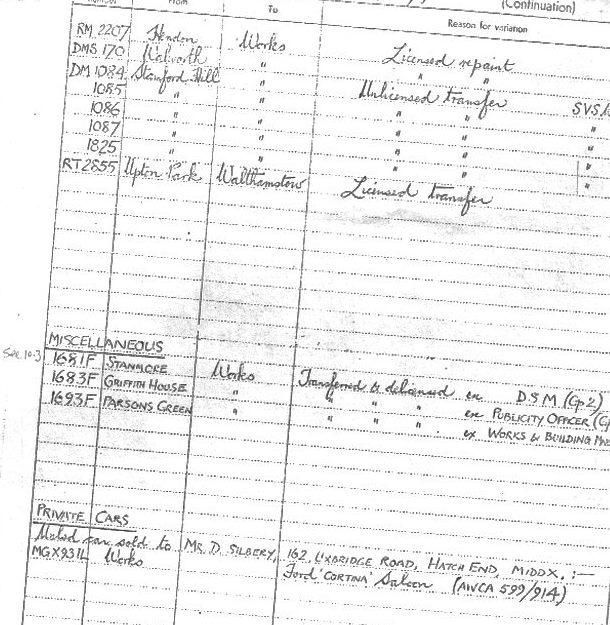 (Continuation)
From To Reason for variation
RM 2207 Hendon Works Licensed repaint
DMS 170 Walworth " " "
DM 1084 Stamford Hill " Unlicensed transfer
1085 " " " " "
1086 " " " " "
1087 " " " " "
1825 " " " " "
RT 2855 Upton Park Walthamstow Licensed transfer
MISCELLANEOUS
1681F STANMORE Works Transferred & delicensed ex. D.S.M (Gp.2)
1683F GRIFFITH HOUSE " " " " ex PUBLICITY OFFICER
1693F PARSONS GREEN " " " " ex WORKS & BUILDING
PRIVATE CARS
car sold to MR. D. SILBERY, 162, UXBRIDGE ROAD, HATCH END, MIDDX, :—
MGX931L Works Ford 'CORTINA' Saloon (AWCA 599/914)